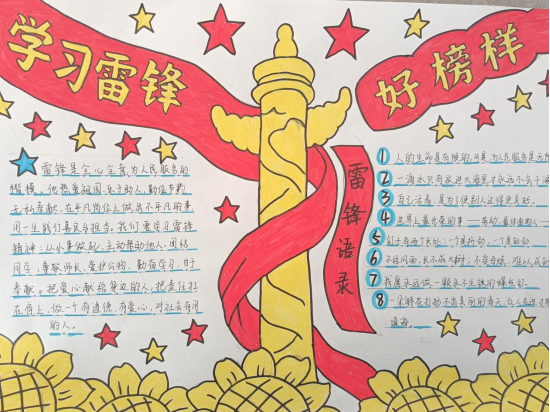 学习雷锋
好榜样
雷锋是全心全意为人民服务的
楷模。他热爱祖国,乐于助人,勤俭节约
无私奉献,在平凡岗位上做出不平凡的事
用一生践行着良善担当。我们要学习雷锋
精神,从小事做起,主动帮助他人,团结
同学,尊敬师长,爱护公物,勤奋学习,甘于
奉献,把爱心献给身边的人,把责任扛
在肩上,做一个有道德,有爱心,对社会有用
的人。
雷锋语录
1 人的生命是有限的,可是,为人民服务是无限
2 一滴水只有放进大海里才永远不会干涸
3 自己活着,是为了使别人过得更美好。
4 世界上最光荣的事——劳动。
5 钉子有两个长处:一个是挤劲,一个是钻劲
6 不经风雨,长不成大树;不受百炼,难以成钢
7 我愿永远做一颗永不生锈的螺丝钉
8 一朵鲜花打扮不出美丽的春天,众人